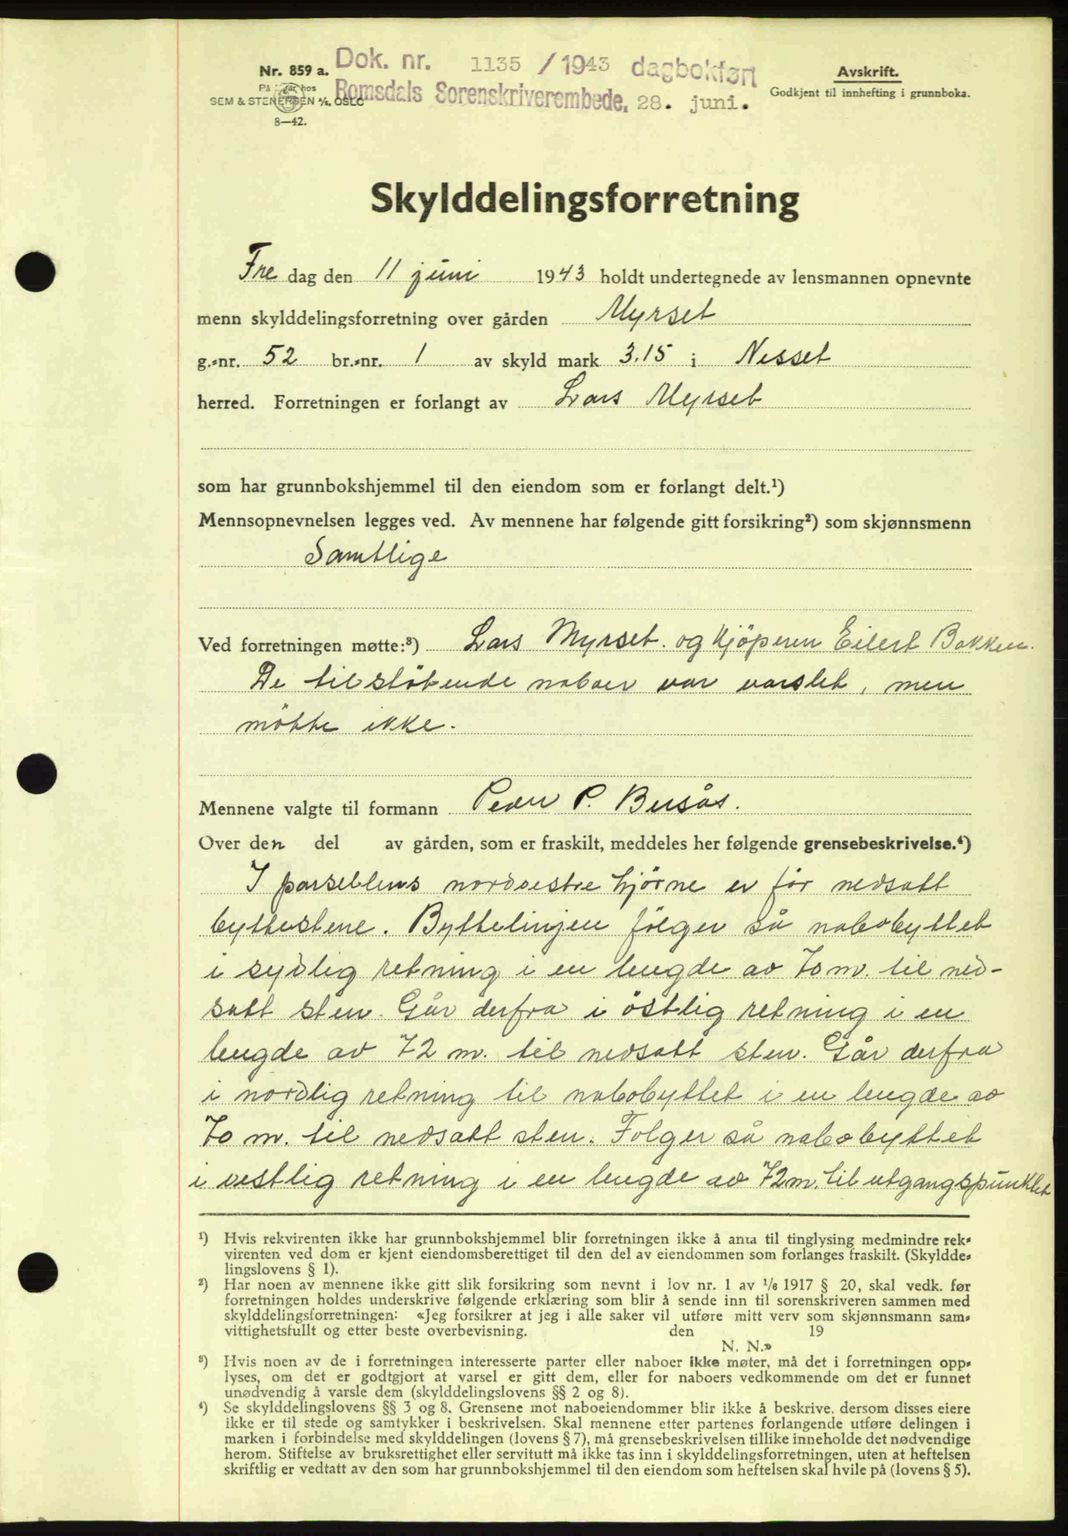 Nr. 859 a.
På lager hos
SEM & STENERSEN A/S, OSLO
8—42.
Dok. nr. 1135 / 1943 dagbokført
Romsdals Sorenskriverembede, 28. juni.
Avskrift.
Godkjent til innhefting i grunnboka.
Skylddelingsforretning
Fre dag den 11 juni 1943 holdt undertegnede av lensmannen opnevnte
menn skylddelingsforretning over gården Myrset
g.-nr. 52 br.-nr. 1 av skyld mark 3.15 i Nesset
herred. Forretningen er forlangt av Lars Myrset
som har grunnbokshjemmel til den eiendom som er forlangt delt.¹)
Mennsopnevnelsen legges ved. Av mennene har følgende gitt forsikring²) som skjønnsmenn
Samtlige
Ved forretningen møtte:³) Lars Myrset. og kjöperen Eilert Bakken.
De tilstötende naboer var varslet, men
mötte ikke.
Mennene valgte til formann Peder P. Busås.
Over den del av gården, som er fraskilt, meddeles her følgende grensebeskrivelse.⁴)
I parsellens nordvestre hjörne er för nedsatt
byttestene. Byttelinjen fölger så nabobyttet
i sydlig retning i en lengde av 70 m. til ned-
satt sten. Går derfra i östlig retning i en
lengde av 72 m. til nedsatt sten. Går derfra
i nordlig retning til nabobyttet i en lengde av
70 m. til nedsatt sten. Fölger så nabobyttet
i vestlig retning i en lengde av 72 m. til utgangspunktet
¹) Hvis rekvirenten ikke har grunnbokshjemmel blir forretningen ikke å anta til tinglysing medmindre rek-
virenten ved dom er kjent eiendomsberettiget til den del av eiendommen som forlanges fraskilt. (Skyldde-
lingslovens § 1).
²) Har noen av mennene ikke gitt slik forsikring som nevnt i lov nr. 1 av 1/6 1917 § 20, skal vedk. før
forretningen holdes underskrive følgende erklæring som blir å sende inn til sorenskriveren sammen med
skylddelingsforretningen: «Jeg forsikrer at jeg i alle saker vil utføre mitt verv som skjønnsmann sam-
vittighetsfullt og etter beste overbevisning. den 19
N. N.»
³) Hvis noen av de i forretningen interesserte parter eller naboer ikke møter, må det i forretningen opp-
lyses, om det er godtgjort at varsel er gitt dem, eller for naboers vedkommende om det er funnet
unødvendig å varsle dem (skylddelingslovens §§ 2 og 8).
⁴) Se skylddelingslovens §§ 3 og 8. Grensene mot naboeiendommer blir ikke å beskrive, dersom disses eiere
ikke er til stede og samtykker i beskrivelsen. Skal mennene etter partenes forlangende utføre delingen i
marken i forbindelse med skylddelingen (lovens § 7), må grensebeskrivelsen tillike inneholde det nødvendige
herom. Stiftelse av bruksrettighet eller servitutt må ikke tas inn i skylddelingsforretningen, uten at heftelsen
skriftlig er vedtatt av den som har grunnbokshjemmel til den eiendom som heftelsen skal hvile på (lovens § 5).